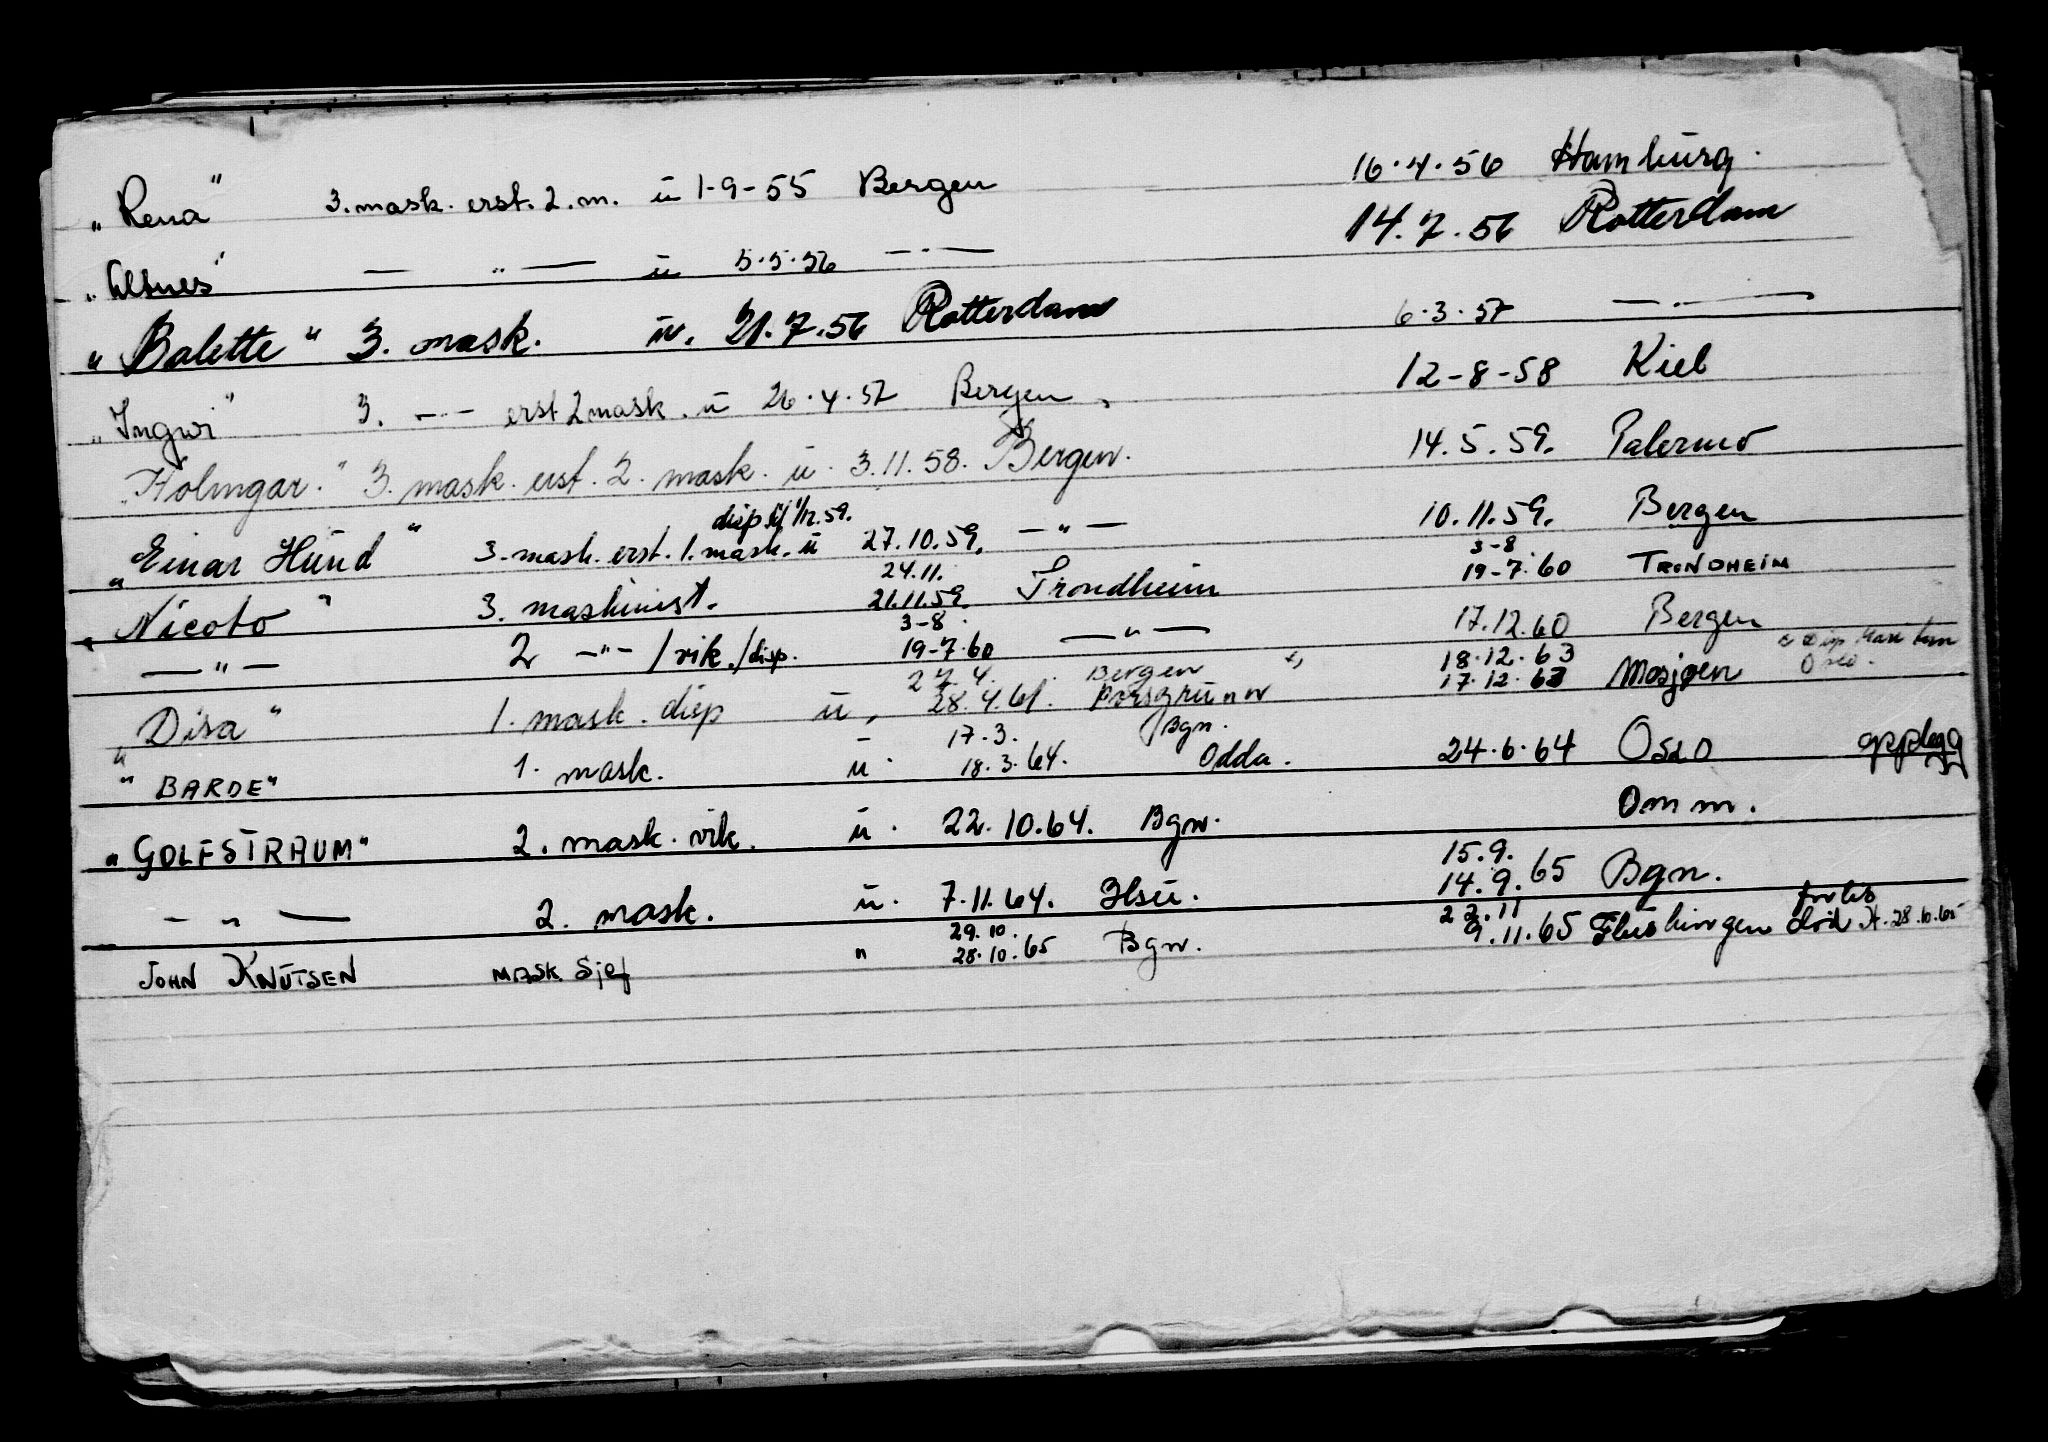 „Rena" 3. mask. erst. 2. m. u 1-9-55 Bergen 16.4.56 Hamburg.
„Altnes" — „ — u 5.5.56 — . — 14.7.56 Rotterdam
„Balette" 3. mask. u. 21.7.56 Rotterdam 6.3.57 — . —
„Ingwi" 3. — . — erst 2 mask. u 26.4.57 Bergen. 12-8-58 Kiel
„Holmgar." 3. mask. erst. 2. mask. u. 3.11.58. Bergen. 14.5.59. Palermo
disp. 1/12.59.
„Einar Hund" 3. mask. erst. 1. mask. u 27.10.59. — " — 10.11.59. Bergen
24.11. 3-8
„Nicoto" 3. maskinist. 21.11.59. Trondheim 19-7.60 TRONDHEIM
3-8
— " — 2 — " — / vik. / disp. 19-7.60 — " — 17.12.60 Bergen
27.4. Bergen 18.12.63 Oslo.
„Disa" 1. mask. disp u. 28.4.61. Porsgrunn 17.12.63 Mosjøen
17.3. Bgn.
„BARDE" 1. mask. u. 18.3.64. Odda. 24.6.64 Oslo opplegg
„GOLFSTRAUM" 2. mask. vik. u. 22.10.64. Bgn. Omm.
15.9.
— " — 2. mask. u. 7.11.64. Hsu. 14.9.65 Bgn.
29.10. 22.11
JOHN KNUTSEN MASK Sjef " 28.10.65 Bgn. 9.11.65 Flushingen død 28.10.65